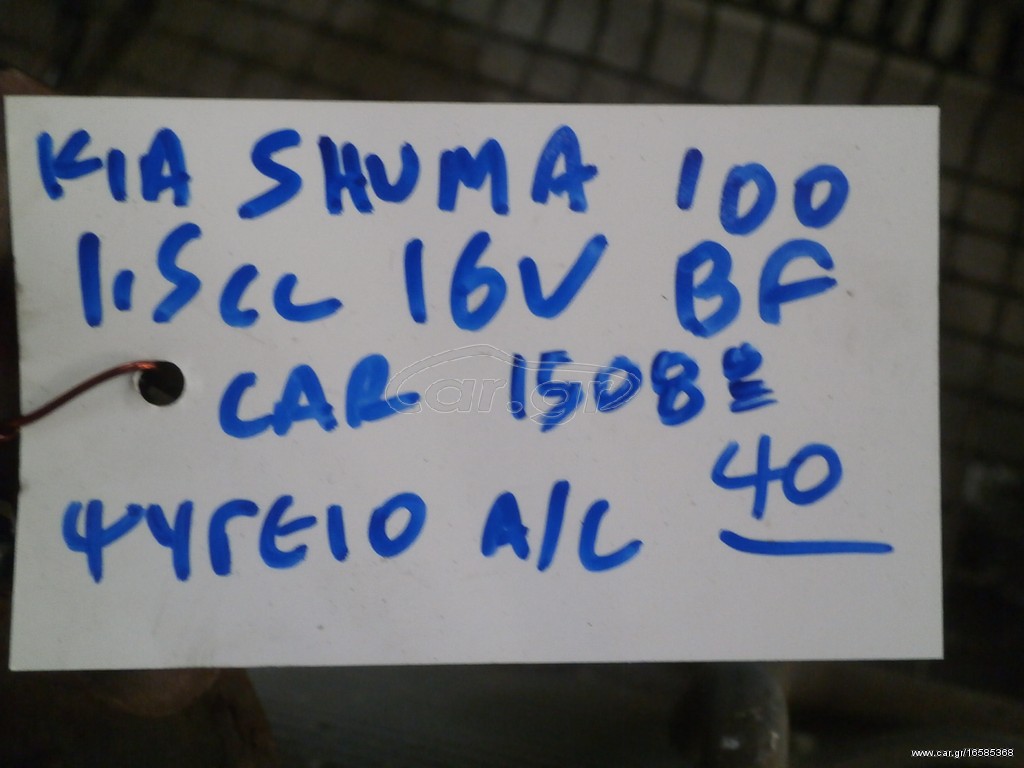 KIA SHUMA 100
1.5CC 16V BF
CAR 1508
40
ΨΥΓΕΙΟ A/C
car.gr
www.car.gr/16585368